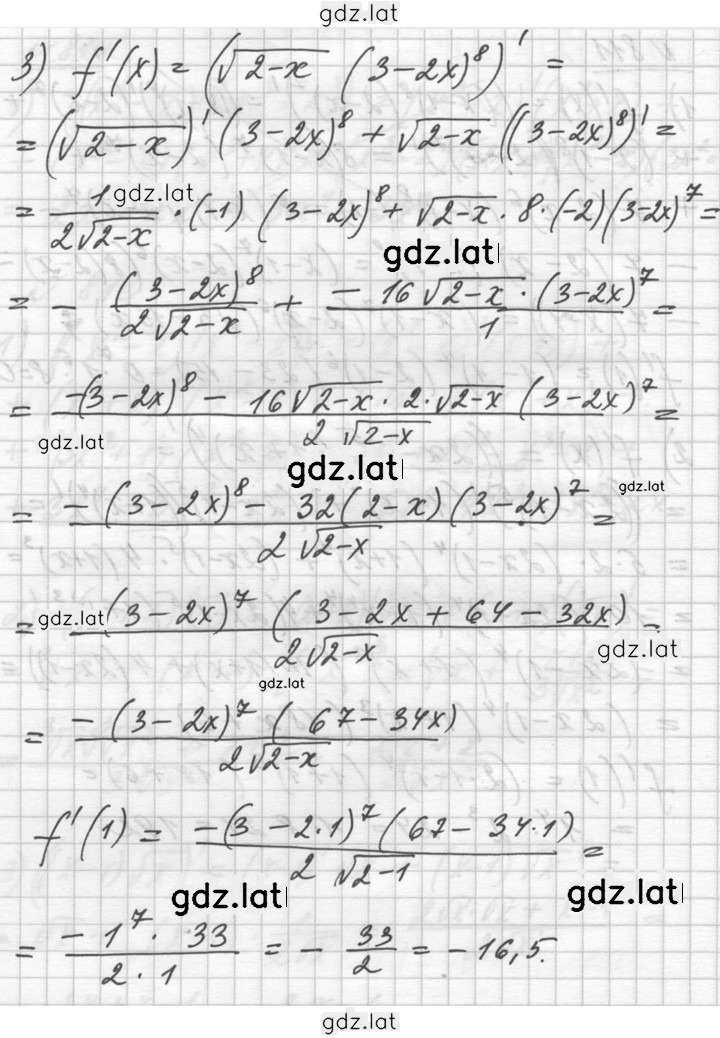 gdz.lat
3) f'(x) = (√(2-x) (3-2x)⁸)' =
= (√(2-x))' (3-2x)⁸ + √(2-x) ((3-2x)⁸)' =
= 1/(2√(2-x)) · (-1) (3-2x)⁸ + √(2-x) · 8 · (-2)(3-2x)⁷ =
gdz.lat
gdz.lat
= - (3-2x)⁸/(2√(2-x)) + (-16√(2-x) · (3-2x)⁷)/1 =
= (-(3-2x)⁸ - 16√(2-x) · 2 · √(2-x) (3-2x)⁷)/(2√(2-x)) =
gdz.lat
gdz.lat
gdz.lat
= (-(3-2x)⁸ - 32(2-x)(3-2x)⁷)/(2√(2-x)) =
= (3-2x)⁷ (3-2x+64-32x)/(2√(2-x)) =
gdz.lat
gdz.lat
gdz.lat
= (-(3-2x)⁷ (67-34x))/(2√(2-x))
f'(1) = (-(3-2·1)⁷ (67-34·1))/(2√(2-1)) =
gdz.lat
gdz.lat
= (-1⁷ · 33)/(2·1) = - 33/2 = -16,5.
gdz.lat